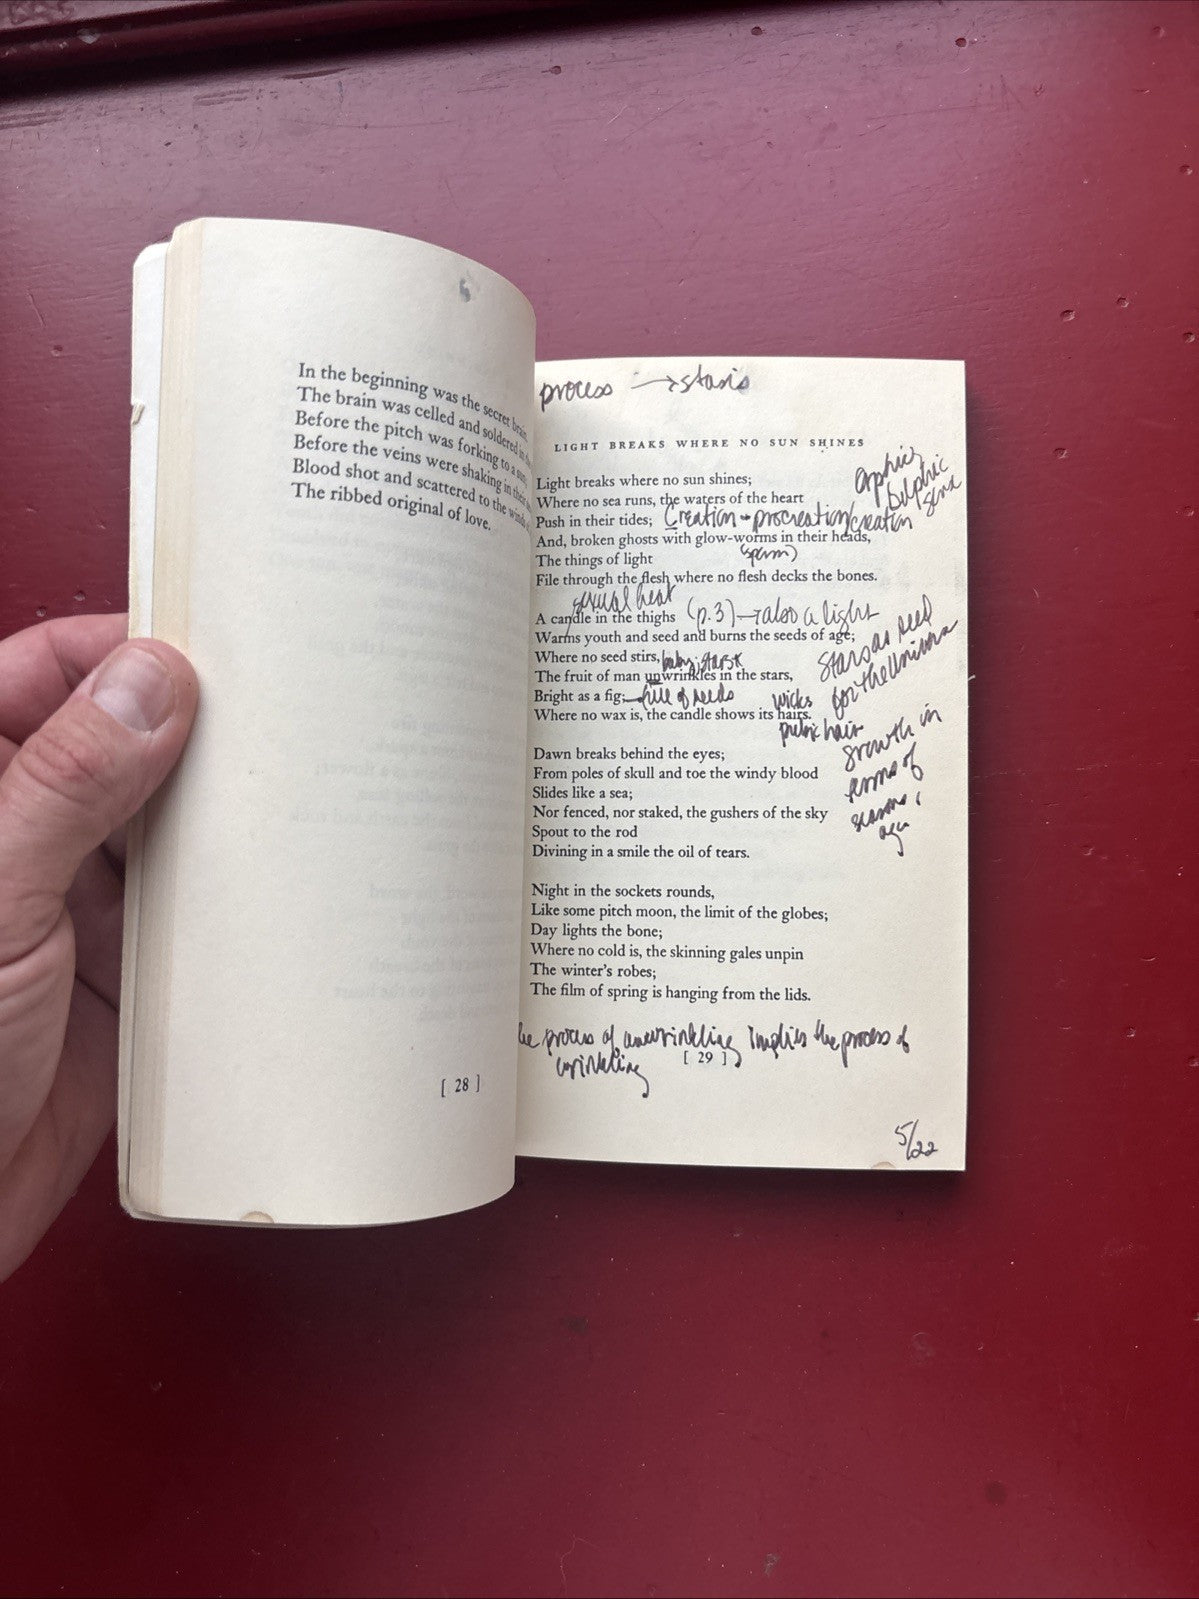 In the beginning was the secret brain.
The brain was celled and soldered in the
Before the pitch was forking to a sun;
Before the veins were shaking in their
Blood shot and scattered to the winds of
The ribbed original of love.
[ 28 ]
process → stasis
LIGHT BREAKS WHERE NO SUN SHINES
Light breaks where no sun shines;
Where no sea runs, the waters of the heart
Push in their tides; Creation → procreation/creation
And, broken ghosts with glow-worms in their heads,
(sperm)
The things of light
File through the flesh where no flesh decks the bones.
sexual heat
A candle in the thighs (p. 3) → also a light
Warms youth and seed and burns the seeds of age;
Where no seed stirs, baby, stars
The fruit of man unwrinkles in the stars,
Bright as a fig; full of seeds
Where no wax is, the candle shows its hairs.
wicks
pubic hair
stars as seed
for the universe
growth in
terms of
seasons,
age
Dawn breaks behind the eyes;
From poles of skull and toe the windy blood
Slides like a sea;
Nor fenced, nor staked, the gushers of the sky
Spout to the rod
Divining in a smile the oil of tears.
Night in the sockets rounds,
Like some pitch moon, the limit of the globes;
Day lights the bone;
Where no cold is, the skinning gales unpin
The winter's robes;
The film of spring is hanging from the lids.
he process of unwrinkling implies the process of
wrinkling
[ 29 ]
5/22